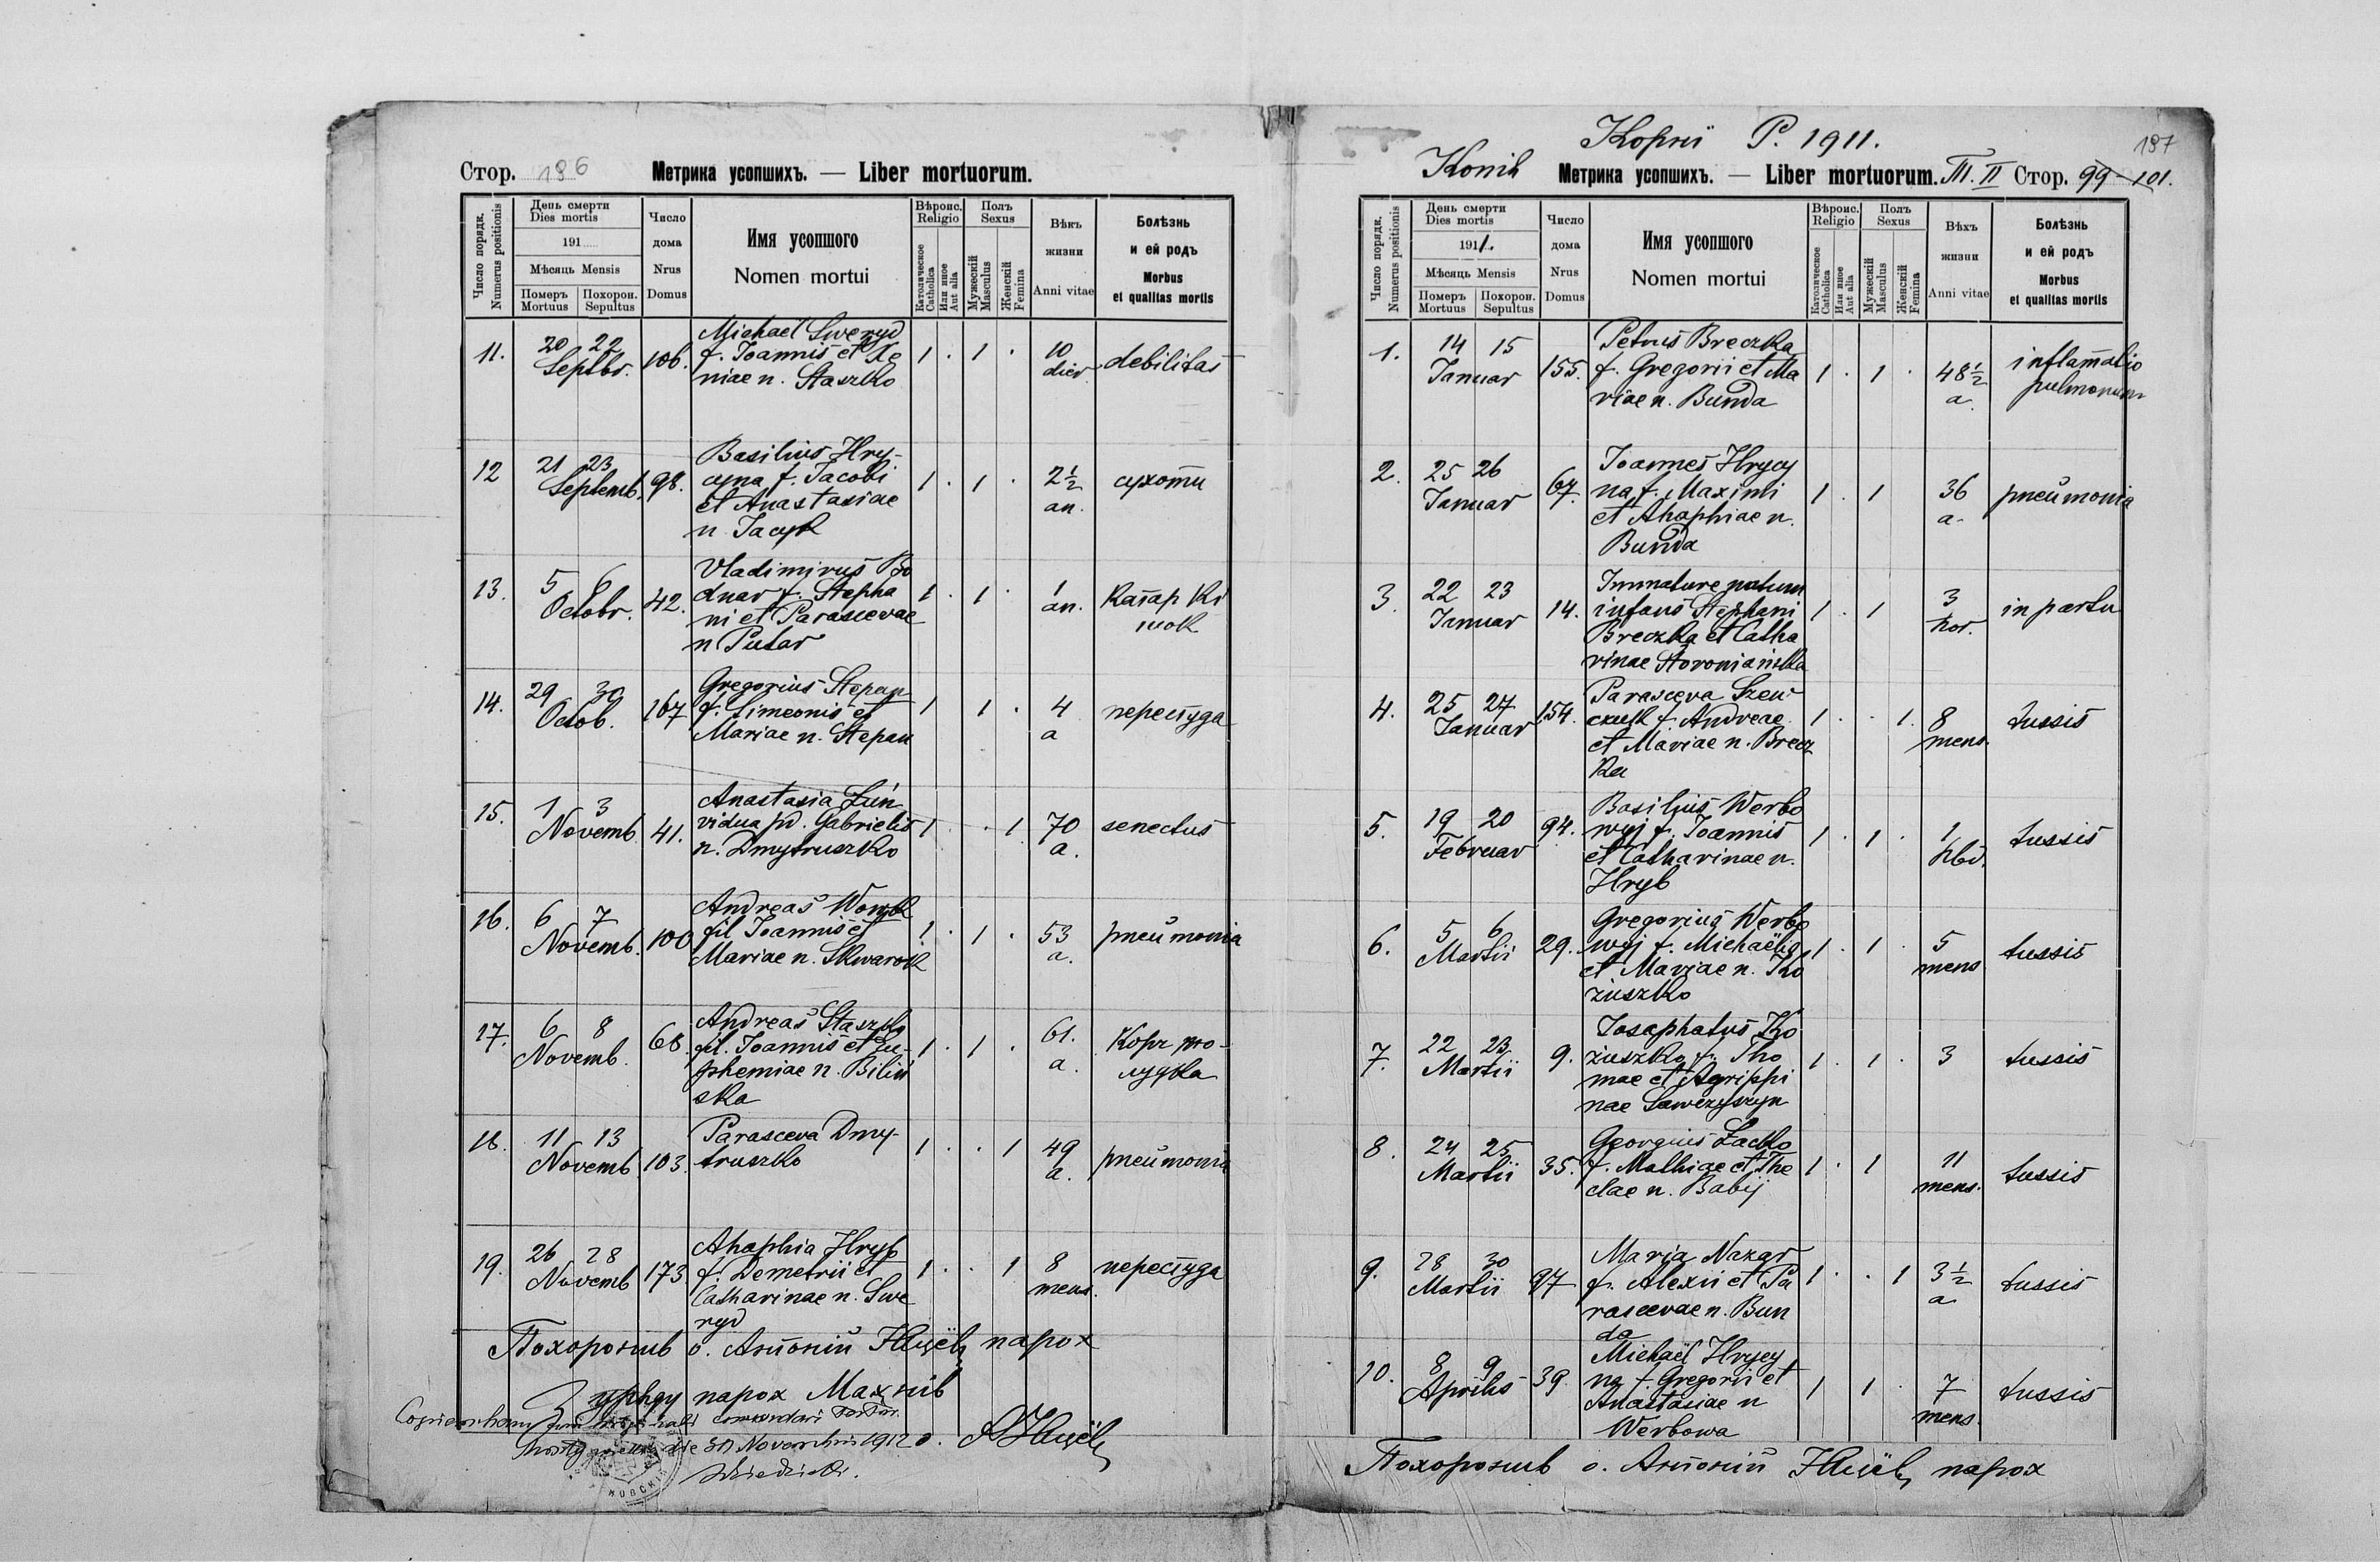 Стор. 196 Метрика усопшихъ. — Liber mortuorum.
Число порядк. Numerus positionis
День смерти Dies mortis
191
Мѣсяць Mensis
Померъ Mortuus
Похорон. Sepultus
Число дома Nrus Domus
Имя усопшого
Nomen mortui
Вѣроис. Religio
Католическое Catholica
Или иное Aut alia
Полъ Sexus
Мужескій Masculus
Женскій Femina
Вѣкъ жизни Anni vitae
Болѣзнь и ей родъ
Morbus et qualitas mortis
11. 20 22 Septbr. 106. 1 · 1 · 10 dier. debilitas
Michael Sweryd
f. Joannis et Xe
niae n. Staszko
12 21 23 Septemb. 98. 1 · 1 · 2½ an. сухоти
Basilius Hry-
cyna f. Jacobi
et Anastasiae
n. Jacyk
13. 5 6 Octobr. 42. 1 · 1 · 1 an. Катар ки
шок
Vladimirus Bo
dnar f. Stepha
ni et Parascevae
n Putar
14. 29 30 Octob. 167 1 1 · 4 a перестуда
Gregorius Stepan
f. Simeonis et
Mariae n. Stepan
15. 1 3 Novemb 41. 1 · · 1 70 a. senectus
Anastasia Łuń
vidua pd. Gabrielis
n. Dmytruszko
16. 6 7 Novemb. 100 1 · 1 · 53 a. pneumonia
Andreas
fil Joannis et
Mariae n. Skwarok
17. 6 8 Novemb. 68 1 · 1 · 61. a.
Andreas Staszko
fil. Joannis et Eu-
phemiae n. Biliń
ska
18. 11 13 Novemb. 103. 1 · · 1 49 a. pneumonia
Parasceva Dmy-
truszko
19. 26 28 Novemb 173. 1 · · 1 8 mens. перестуда
Ahaphia Hryb
f. Demetrii et
Catharinae n. Swe
ryd
Похоронив о. Антоній парох
парох Махнів
concordari
die 30 Novembris 1912
Копиї Р. 1911. 197
Konih Метрика усопшихъ. — Liber mortuorum. Т. II Стор. 99-101.
Число порядк. Numerus positionis
День смерти Dies mortis
1911.
Мѣсяць Mensis
Померъ Mortuus
Похорон. Sepultus
Число дома Nrus Domus
Имя усопшого
Nomen mortui
Вѣроис. Religio
Католическое Catholica
Или иное Aut alia
Полъ Sexus
Мужескій Masculus
Женскій Femina
Вѣхъ жизни Anni vitae
Болѣзнь и ей родъ
Morbus et qualitas mortis
1. 14 15 Januar 155. 1 · 1 · 48½ a. inflamatio
pulmonum
Petrus Breczka
f. Gregorii et Ma
riae n. Bunda
2. 25 26 Januar 67. 1 · 1 36 a. pneumonia
Joannes Hrycy
na f. Maximi
et Ahaphiae n.
Bunda
3. 22 23 Januar 14. 1 · 1 3 hor. in partu
Immature natum
infans Stephani
Breczka et Catha
rinae Storoniańska
4. 25 27 Januar 154. 1 · · 1. 8 mens. tussis
Parasceva Szew
czuk f. Andreae
et Mariae n. Brecz
ka
5. 19 20 Februar 94. 1 · 1 · 1 hbd. tussis
Basilius Werbo
wyj f. Joannis
et Catharinae n.
Hryb
6. 5 6 Martii 29. 1 · 1 · 5 mens tussis
Gregorius Werbo
wyj f. Michaëlis
et Mariae n. Ko
żuszko
7. 22 23 Martii 9. 1 · 1 · 3 tussis
Josaphatus Ko
żuszko f. Tho
mae et Agrippi
nae Sawczyszyn
8. 24 25 Martii 35. 1 · 1 11 mens. tussis
Georgius Lacko
f. Mathiae et The
clae n. Babij
9. 28 30 Martii 97 1 · · 1 3½ a tussis
Maria Nazar
f. Alexii et Pa
rascevae n. Bun
da
10. 8 9 Aprilis 39. 1 1 · 7 mens. tussis
Michaël Hrycy
na f Gregorii et
Anastasiae n
Werbowa
Похоронив о. Антоній парох